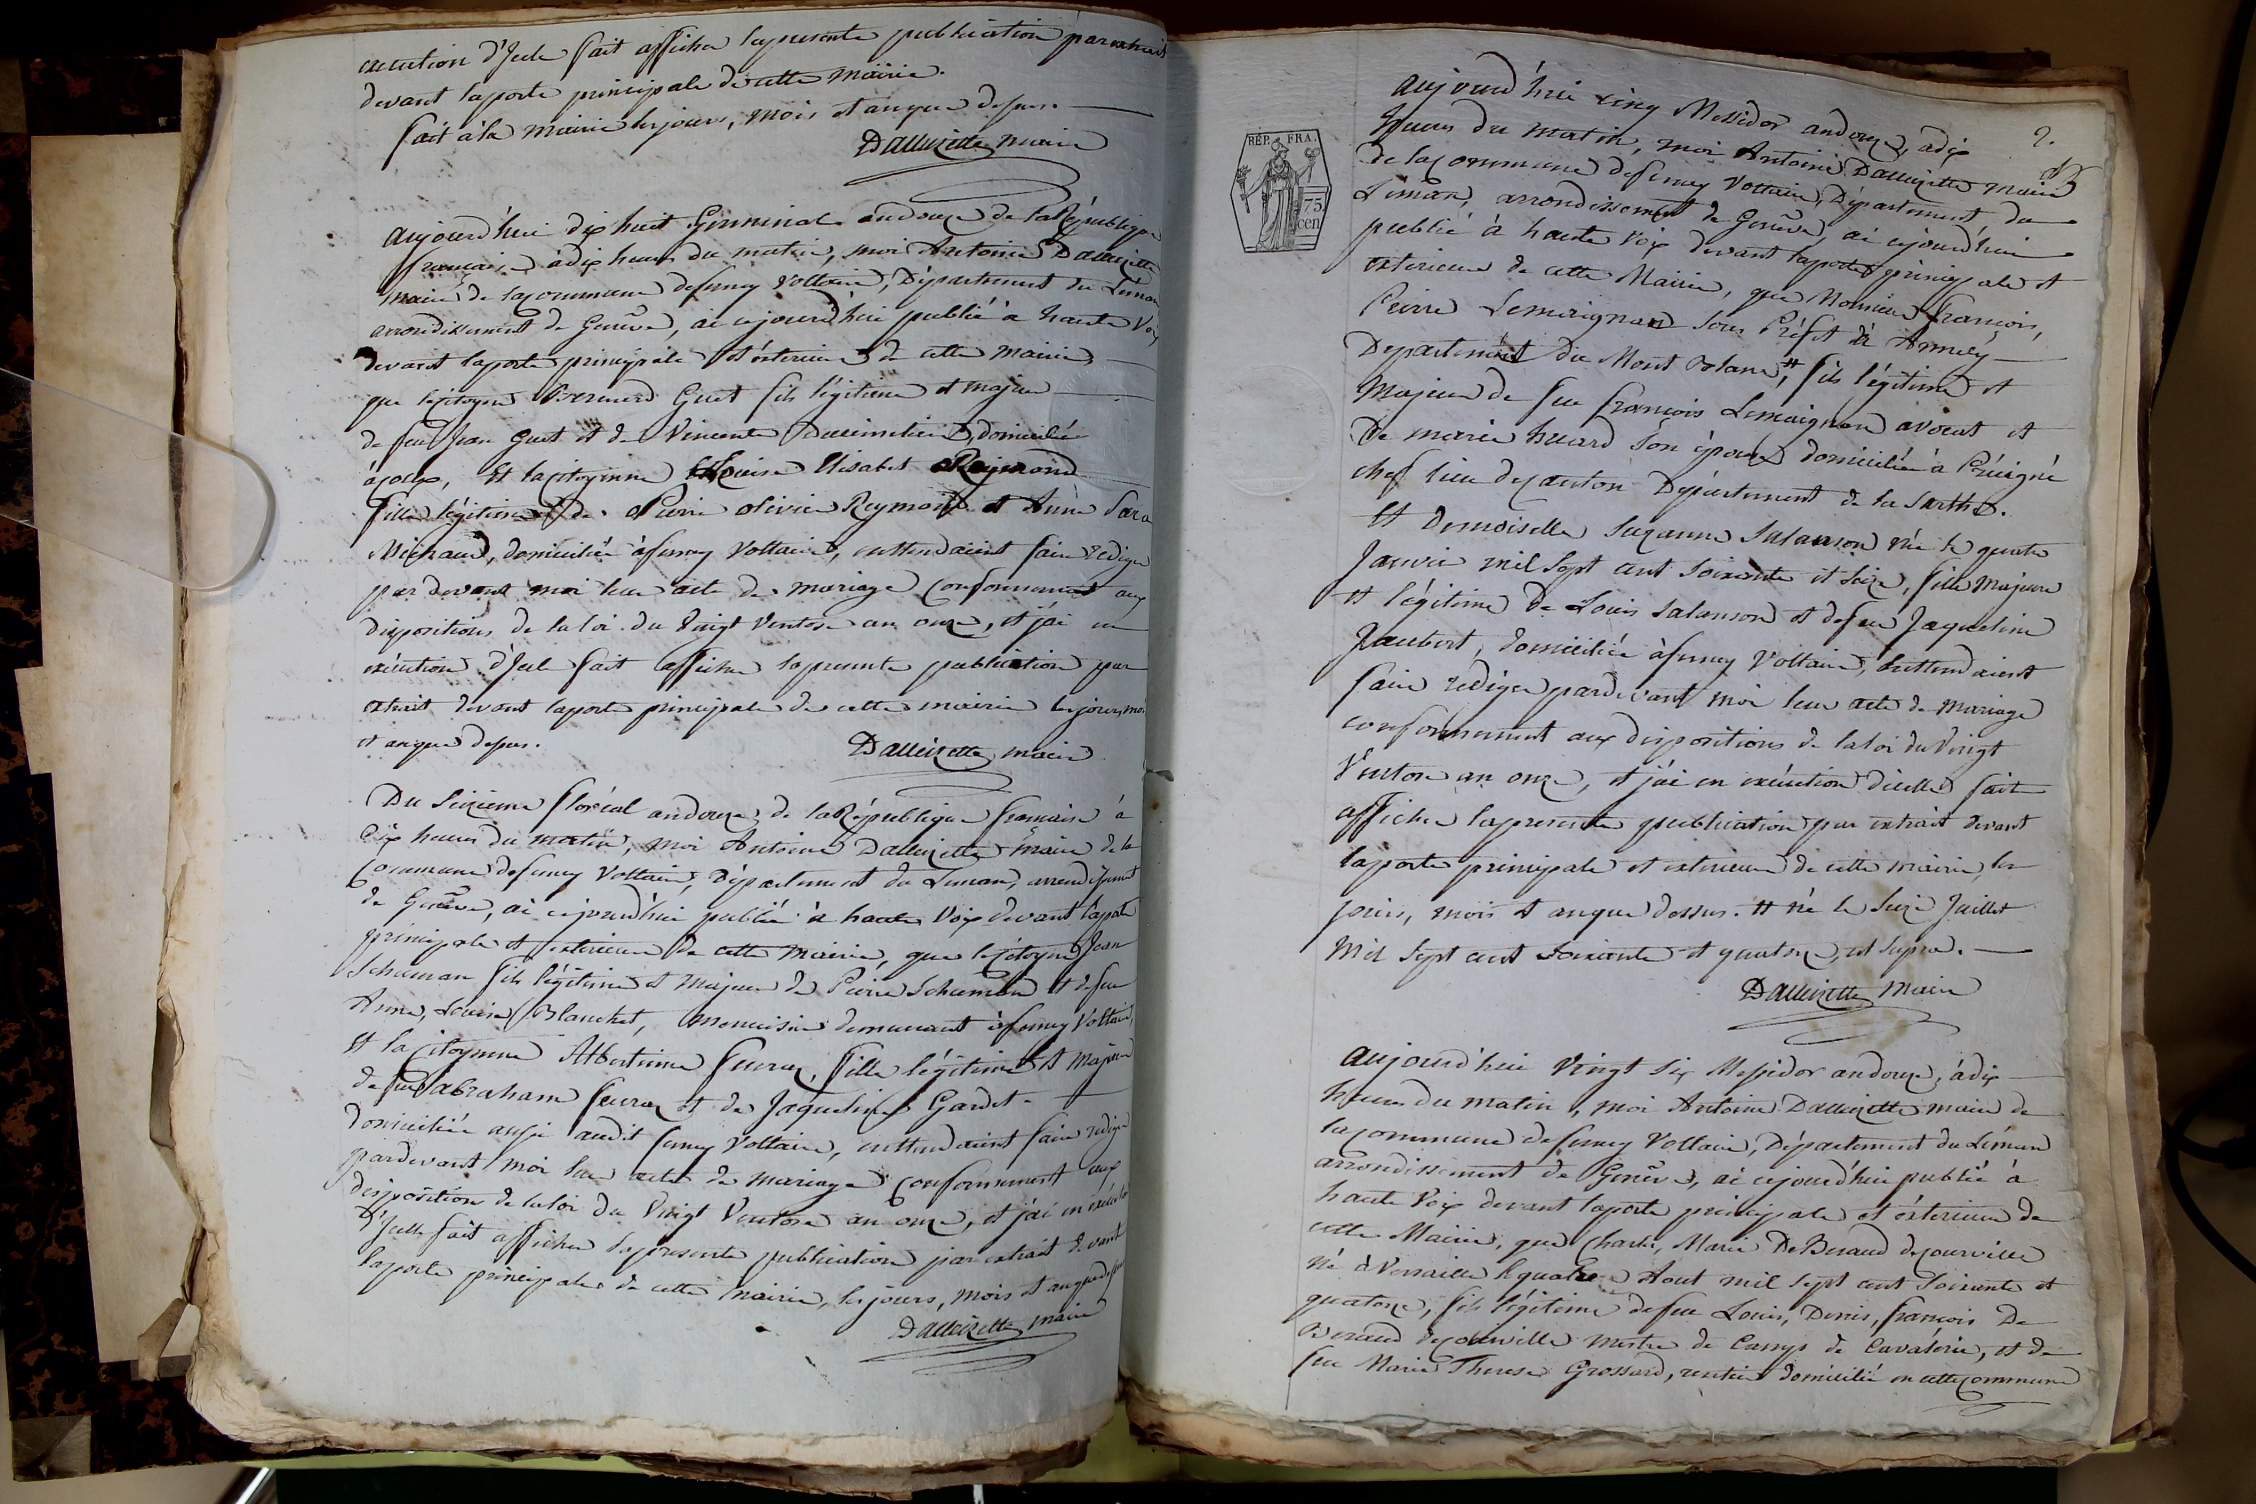 execution d'Icelle fait afficher la presente publication par extrait
devant laporte principale de cette mairie.
fait à la mairie les jours, mois et an que dessus.
Dalleizette maire
aujourd'hui dix huit Germinal an douze de la République
française à dix heures du matin, moi Antoine Dalleizette
maire de la commune de ferney Voltaire, Département du Léman
arrondissement de Genève, ai cejourd'hui publié à haute voix
devant laporte principale et éxterieure de cette mairie
que le citoyen Bernard Guet fils légitime et majeur
de feu Jean Guet et de Vincente domiciliée
à et la citoyenne Louise Elisabet Reymond
fille légitime de Pierre olivier Reymond et Anne Sara
Michaud, domiciliée à ferney Voltaire, enttendaient faire rediger
par devant moi leur acte de mariage conformement aux
dispositions de la loi du Vingt Ventose an onze, et j'ai en
exécution d'Icelle fait afficher la presente publication par
extrait devant laporte principale de cette mairie les jours, mois
et an que dessus.
Dalleizette maire
Du Seizieme floréal an douze de la République francaise à
dix heures du matin, moi Antoine Dalleizette maire de la
Commune de ferney Voltaire, Département du Leman, arrondissement
de Genève, ai cejourd'hui publié à haute Voix devant laporte
principale et exterieure de cette mairie, que le citoyen Jean
Schuman fils légitime et majeur de Pierre Schuman et de feu
Anne Louise Blanchet, menuisier demeurant à ferney Voltaire,
et la Citoyenne Albertine feuraz, fille légitime et majeure
de feu abraham feuraz et de Jaqueline Gardet
domiciliée aussi audit ferney Voltaire, enttendaient faire rediger
pardevant moi leur acte de mariage conformement aux
disposition de la loi du Vingt Ventose an onze, et j'ai en éxécution
d'Icelle fait afficher la presente publication par extrait devant
laporte principale de cette mairie, les jours, mois et an que dessus
Dalleizette maire
2.
RÉP. FRA.
75
cen
aujourd'hui cinq Messidor an douze, à dix
heures du matin, moi Antoine Dalleizette maire
de la commune de ferney Voltaire, Département du
Léman, arrondissement de Genève, ai cejourd'hui
publié à haute Voix devant laporte principale et
exterieure de cette Mairie, que Monsieur françois,
Pierre Lemaignan Sous Préfet à Annecy
Departement du Mont Blanc, # fils légitime et
Majeur de feu françois Lemaignan avocat et
de marie huard son épouse domiciliée à Précigné
chef lieu de canton Département de la Sarthe.
et demoiselle Suzanne Salanson née le quatre
Janvier mil sept cent soixante et seize, fille majeure
et légitime de Louis Salanson et de feu Jaqueline
Jaubert, domiciliée à ferney Voltaire, Enttendaient
faire rédiger pardevant moi leur acte de mariage
conformement aux dispositions de la loi du Vingt
Ventose an onze, et j'ai en exécution d'icelle fait
afficher la presente publication par extrait devant
laporte principale et exterieure de cette mairie, les
jours, mois et an que dessus. # né le Seize Juillet
mil sept cent soixante et quatorze, ut supra.
Dalleizette Maire
aujourd'hui Vingt six Messidor an douze, à dix
heures du matin, moi Antoine Dalleizette maire de
la commune de ferney Voltaire, Département du Léman
arrondissement de Genêve, ai cejourd'hui publié à
haute Voix devant laporte principale et éxterieure de
cette Mairie, que Charles, Marie De Beraud de courville
né à Versaille le quatre Aout mil sept cent soixante et
quatorze, fils légitime de feu Louis, Denis, françois De
Beraud de courville mestre de Camp de Cavalerie, et de
feu Marie Therese Grossard, rentier domicilié en cette commune